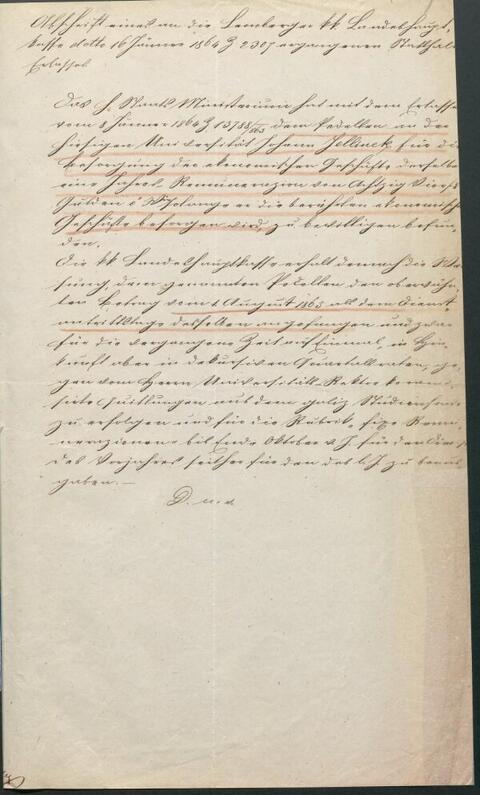 Abschrift eines an die Lemberger kk Landeshaupt,
kasse ddtto 16 Jänner 1864 Z 2307 ergangenen Statthal
Erlasses
Das h. Staats Ministerium hat mit dem Erlasse
vom 8 Jänner 1864 Z 13788/863 dem Pedellen an der
hiesigen Universität Johann Jellinek für die
Besorgung der ekonomischen Geschäfte derselben
eine Jahres Remunerazion von Achtzig Vier
Gulden ö W solange er die berührten ekonomisch
Geschäfte besorgen wird, zu bewilligen befun
den.
Die kk Landeshauptkasse erhält demnach die Wei
sung, dem genannten Pedellen den oberwähn
ten Betrag vom 1 August 1863 als dem Dienst
antrittstage desselben angefangen und zwar
für die vergangene Zeit auf Einmal, in Hin
kunft aber in dekursiven Quartalraten, ge
gen vom Herrn Universitäts-Rektor korami
sirte Quittungen aus dem galiz Studienfonde
zu erfolgen und für die Rubrik, fixe Remu
nerazionen bis Ende Oktober v J. für den
des Vorjahres seither für den des l. J. zu veraus
gaben. —